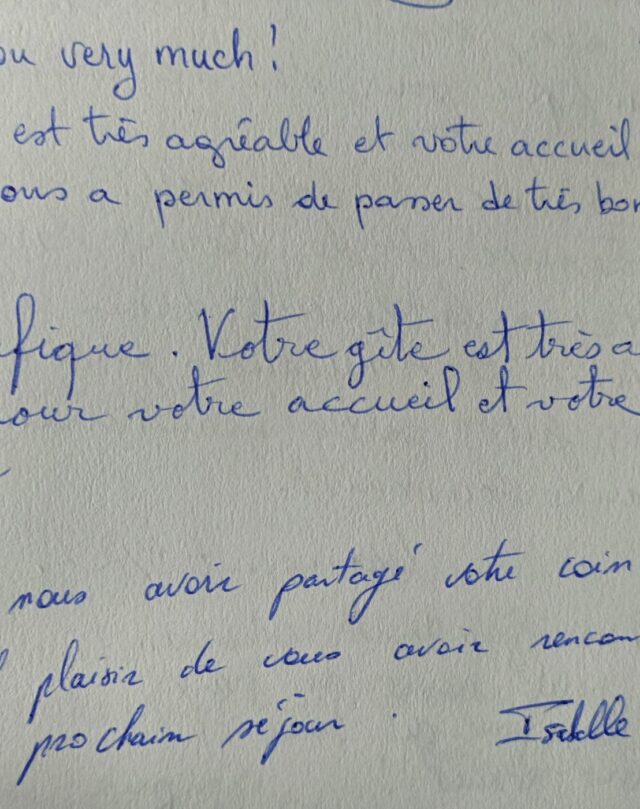 ou very much !
est très agréable et votre accueil
ous a permis de passer de très bon
fique. Votre gîte est très a
our votre accueil et votre
nous avoir partagé votre coin
plaisir de vous avoir rencon
prochain séjour. Isabelle